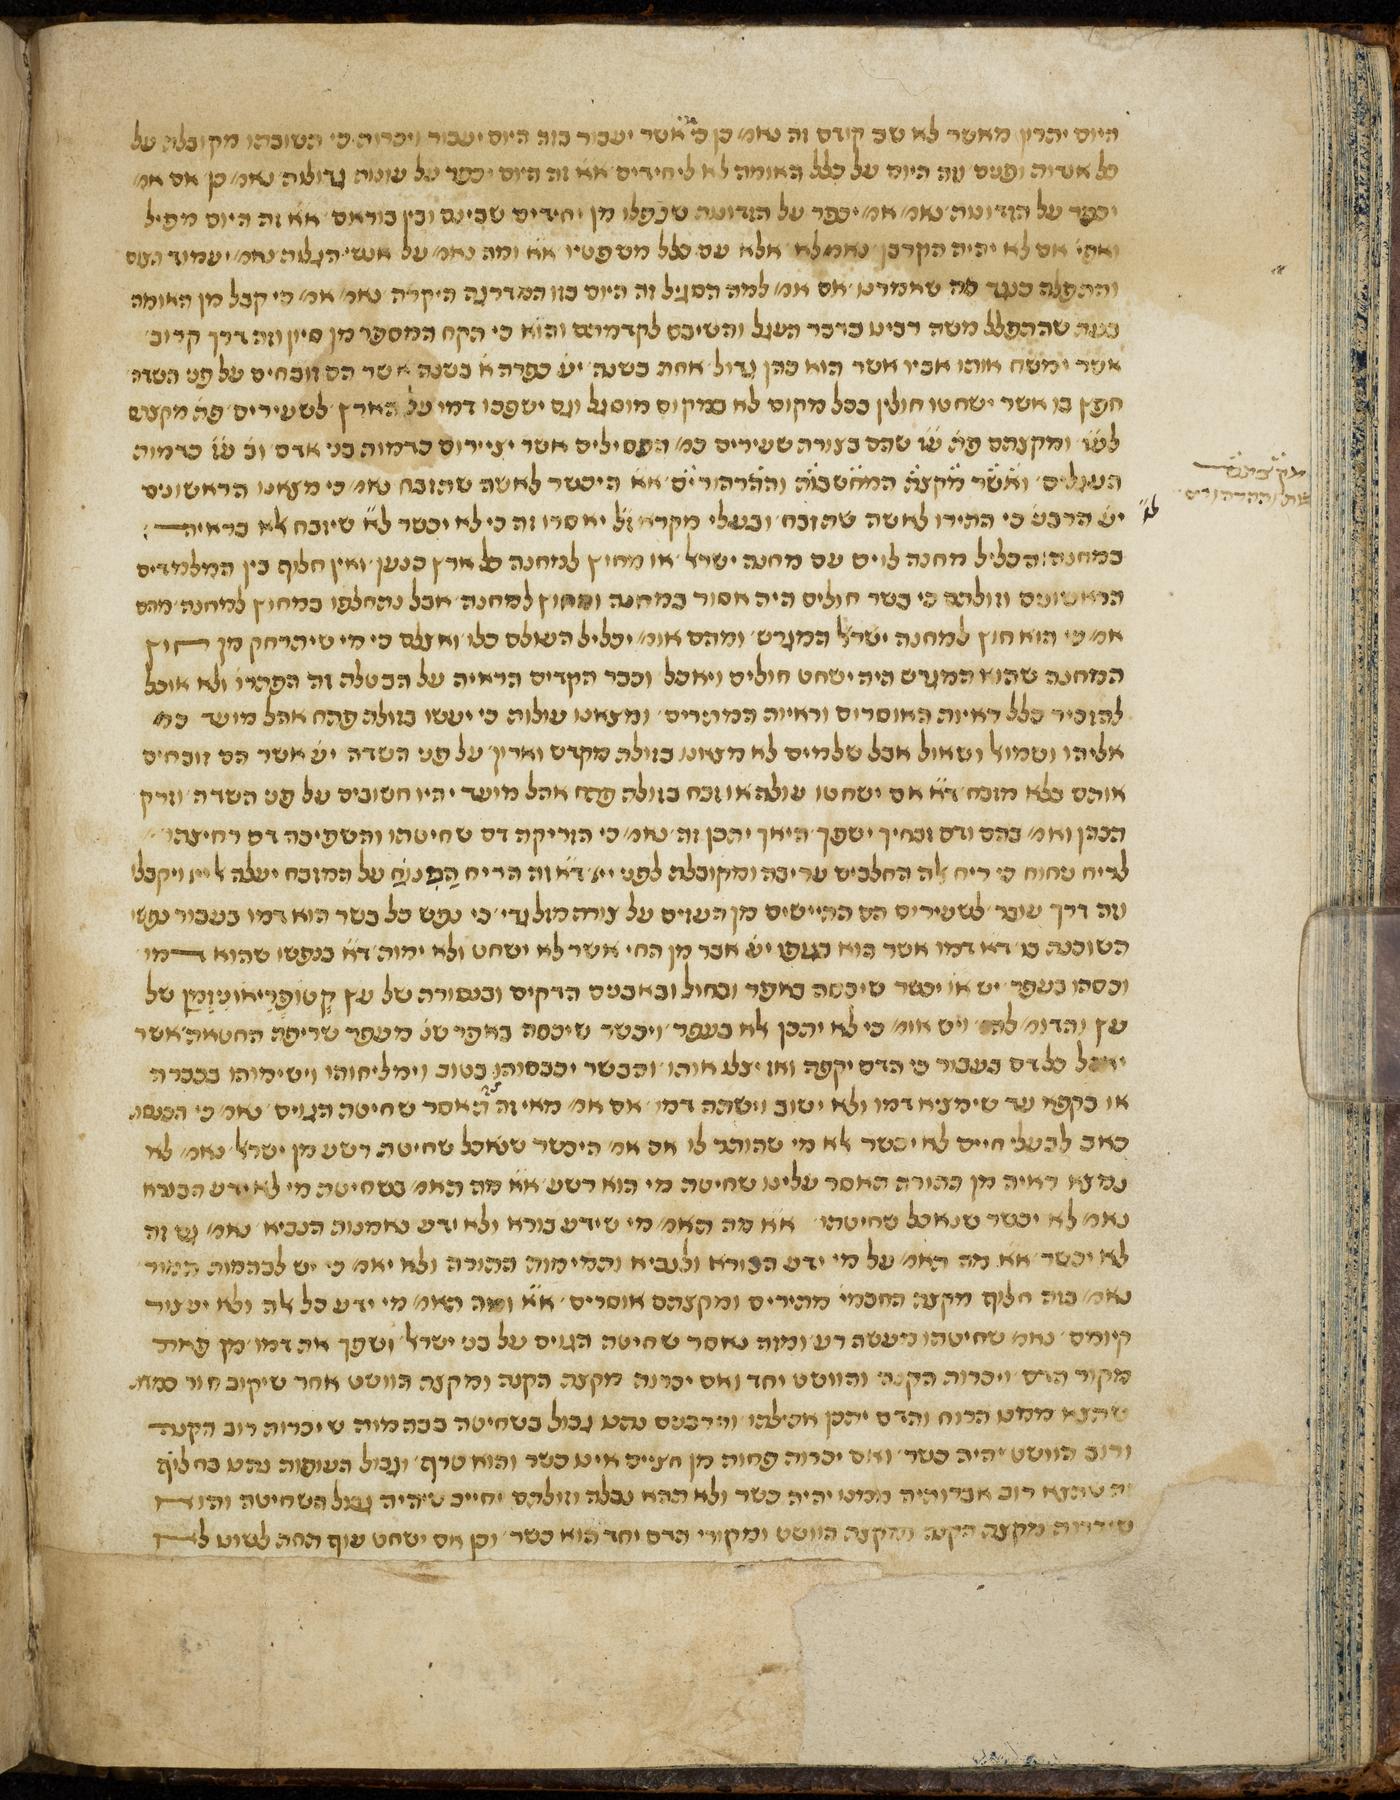 היום יתרון מאשר לא שב קודם זה נאמ׳ כן כי אשר יעבור בזה היום יעבור ויכרות כי תשובתו מקובלת על
כל אנדות ופעם עזה היום על כלל האומה לא ליחידים אא זה היום יכפר על עונות גדולות נאמ׳ כן אם אמ׳
יכפר על הזדונות נאמ׳ אמ׳ יכפר על הזדונות שנפלו מן יחידים שבינם ובין בוראם אא זה היום מפיל
ואתי אם לא יהיה הקרבן נאמ׳ לא אלא עם כלל משפטיו אא ומה נאמ׳ על אנשי הגלות נאמ׳ יעמוד הצום
והתפלה כנגד מה שאמרנו אם אמ׳ למה הסגיל זה היום בזו המדרגה היקרה נאמ׳ אמ׳ כי קבל מן האומה
בעת שהתפלל משה רבינו בדבר העגל והשיבם לקדמותם והוא כי הקח המספר מן סיון וזה דרך קרוב
אשר ימשח אותו אביו אשר הוא כהן גדול אחת בשנה יע כפרה א בשנה אשר הם זובחים על פני השדה
חפץ בו אשר ישחטו חולין בכל מקום לא במקום מוסגל וגם ישפכו דמי על הארץ לשעירים פה מקצתם
לשו׳ ומקצתם פת שו׳ שהם בצורה שעירים כמ׳ הפסילים אשר יציירום כדמות בני אדם וב׳ עו׳ כדמות
העגלים ואשר מקצת המחשבות וההרהורים אא היכשר לאשה שתזבח נאמ׳ כי מצאנו הראשונים
יע הרבנ׳ כי התירו לאשה שתזבח ובעלי מקרא זל יאסרו זה כי לא יכשר לא שיזבח לא בראיה :
במחנה הכליל מחנה לוים עם מחנה ישראל או מחוץ למחנה כל ארץ כנען ואין חלוף בין המלמדים
הראשונים וזולתם כי בשר חולים היה אסור במחנה ומחוץ למחנה אבל נתחלפו במחוץ למחנה מהם
אמ׳ כי הוא חוץ למחנה ישראל המגרש ומהם אומ׳ יכליל העולם כלו ואצלם כי מי שיתרחק מן חוץ
המחנה שהוא המגרש היה ישחט חולים ויאכל וכבר הקדים הראיה על הבטלה זה הפתרו׳ ולא אוכל
להזכיר כלל ראיות האוסרים וראיות המתירים ומצאנו עולות כי יעשו בזולת פתח אהל מועד כמ׳
אליהו ושמואל ושאול אבל שלמים לא מצאנו בזולת מקדש וארון על פני השדה יע אשר הם זובחים
אותם בלא מזבח דא אם ישחטו עולה או זבח בזולת פתח אהל מועד יהיו חשובים על פני השדה וזרק
הכהן ואמ׳ בהם ודם זבחיך ישפך היאך יתכן זה נאמ׳ כי הזריקה דם שחיטתו והשפיכה דם רחיצתו
לריח נחוח כי ריח לה החלבים עריבה ומקובלת לפני ייי דא זה הריח הפונח על המזבח יעלה לייי ויקבלו
וזה דרך עובר לשעירים הם התיישים מן העזים על צורה מזל גדי כי נפש כל בשר הוא דמו בעבור נפשו
השוכנת בו דא דמו אשר הוא בנפשו יע אבר מן החי אשר לא ישחט ולא ימות דא בנפשו שהוא דמו
וכסהו בעפר יש או יכשר שיכסה באפר ובחול ובאבנים הדקים ובנסורת של עץ קטופריאוניומן של
עץ והדומ׳ להם ויש אומ׳ כי לא יתכן לא בעפר ויכשר שיכסה באפר שנ׳ מעפר שריפת החטאת אשר
יאכל כל דם בעבור כי הדם יקפה ואז יצלו אותו והבשר יכבסוהו בטוב וימליחוהו וישימוהו בכברה
או בקפא עד שימציא דמו ולא ישוב וישתה דמו אם אמ׳ מאי זה האסר שחיטת הגוים נאמ׳ כי הכנסו
כאב לבעלי חיים לא יכשר לא מי שהותר לו אם אמ׳ היכשר שנאכל שחיטת רשע מן ישראל נאמ׳ לא
נמצא ראיה מן התורה האסר עלינו שחיטת מי הוא רשע אא מה האמ׳ בשחיטת מי לא ידע הבורא
נאמ׳ לא יכשר שנאכל שחיטתו אא מה האמ׳ מי שידע בורא ולא ידע נאמנות הנביא נאמ׳ גם זה
לא יכשר אא מה האמ׳ על מי ידע הבורא ולנביא והמימות התורה ולא יאמ׳ כי יש לבהמות תמור
נאמ׳ בזה חלוף מקצת החכמי׳ מתירים ומקצתם אוסרים אא ומה האמ׳ מי ידע כל לה ולא יעזור
קיומם נאמ׳ שחיטתו מעשה רע ומזה נאסר שחיטת הגוים על בני ישראל ושפך את דמו מן פאת
מקור הדם ויכרות הקנה והוושט יחד ואם יכרות מקצת הקנה ומקצת הוושט אחר שיקוב חור במות
שתצא ממנו הרוח והדם יתכן אכילתו והרבנים נתנו גבול בשחיטה בבהמות שיכרות רוב הקנה
ורוב הוושט יהיה כשר ואם יכרות פחות מן חציים אינו כשר והוא טרף וגבול העופות נתנו בחלוף
זה שתצא רוב אברותיה ממנו יהיה כשר ולא תהא נבלה וזולתם יחייב שיהיה גבול השחיטה והוא
שיכרות מקצת הקנה ומקצת הוושט ומקורי הדם יחד הוא כשר וכן אם ישחט עוף תחת לשונו ל